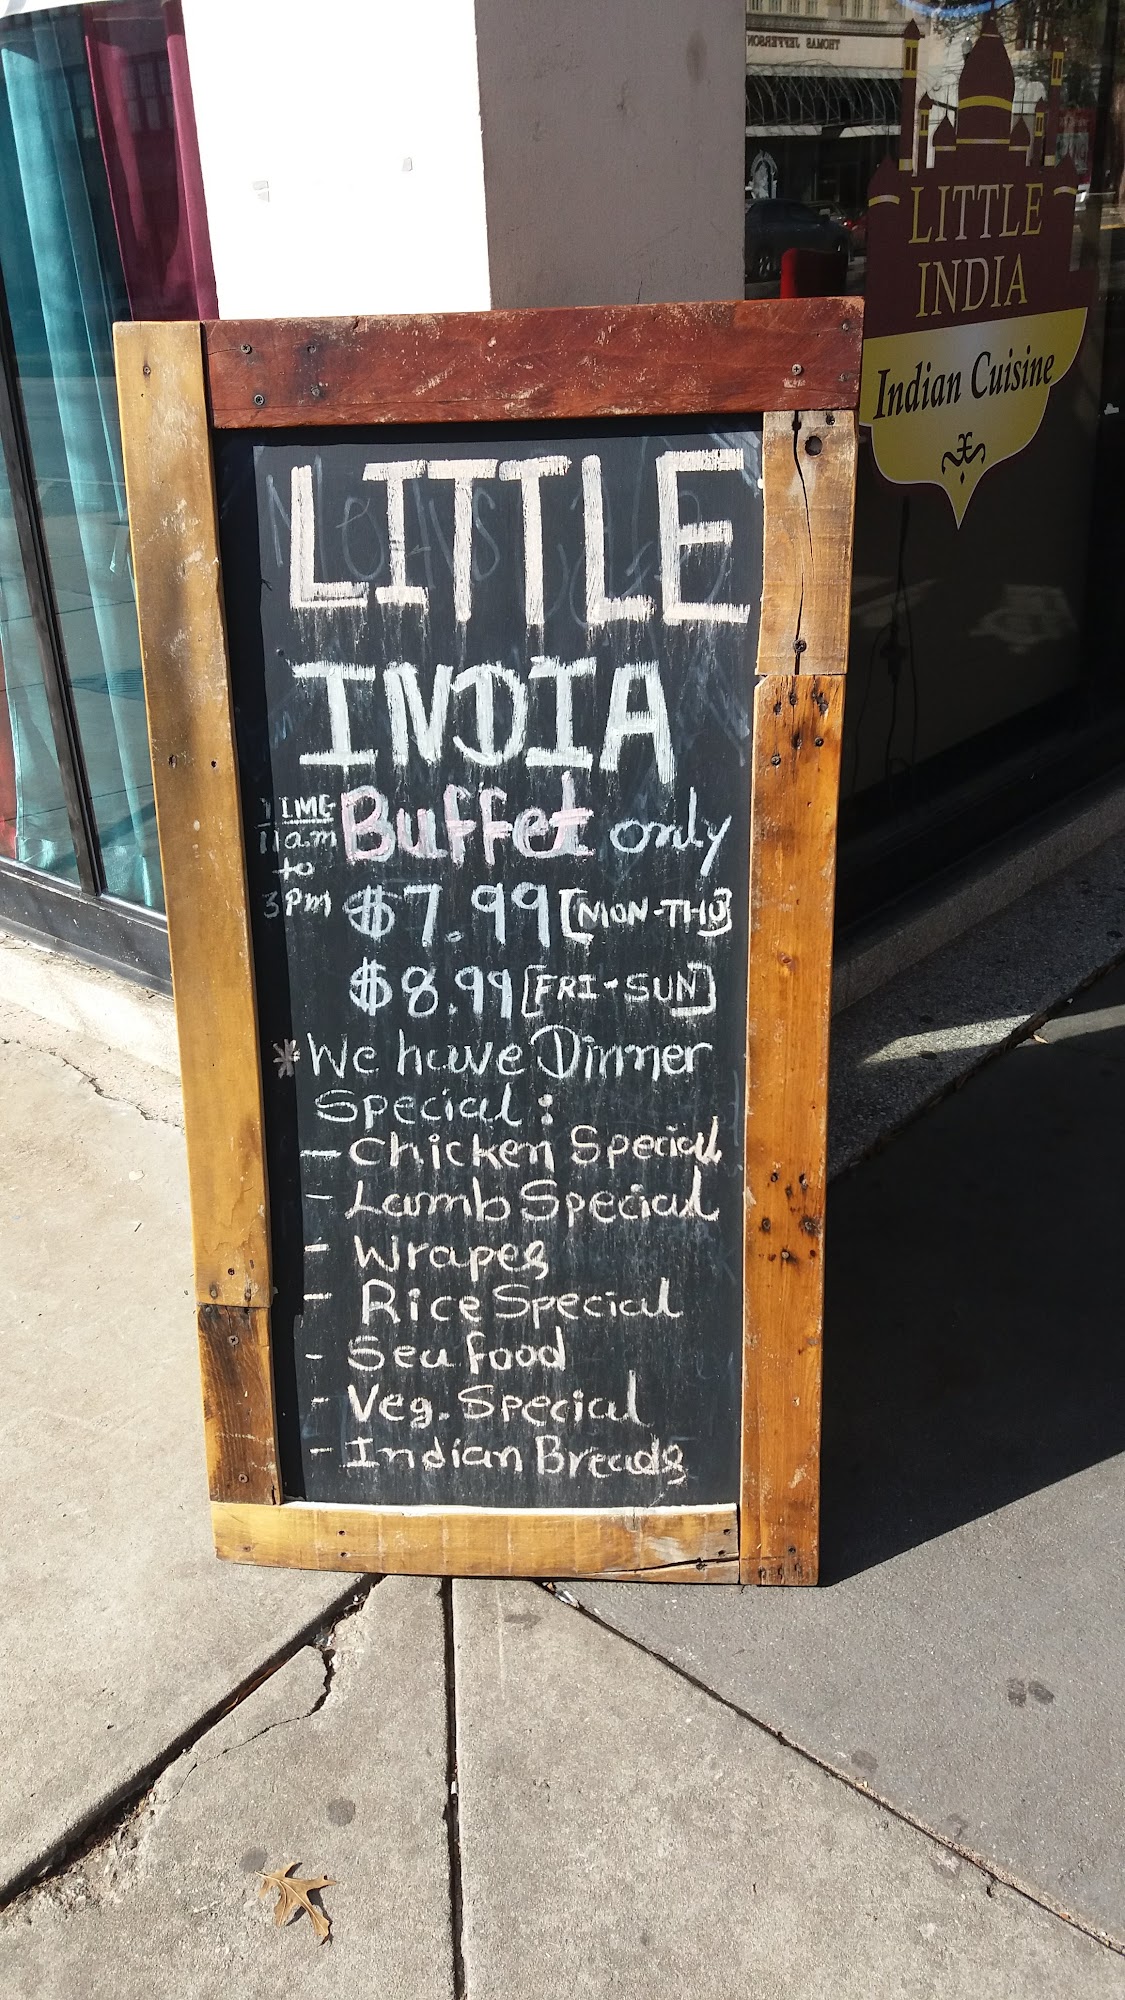 THOMAS JEFFERSON
LITTLE
INDIA
Indian Cuisine
LITTLE
INDIA
TIME
11am
to
3Pm
Buffet only
$7.99 [MON-THU]
$8.99 [FRI-SUN]
*We have Dinner
Special:
- Chicken Special
- Lamb Special
- Wrapes
- Rice Special
- Sea food
- Veg. Special
- Indian Breads